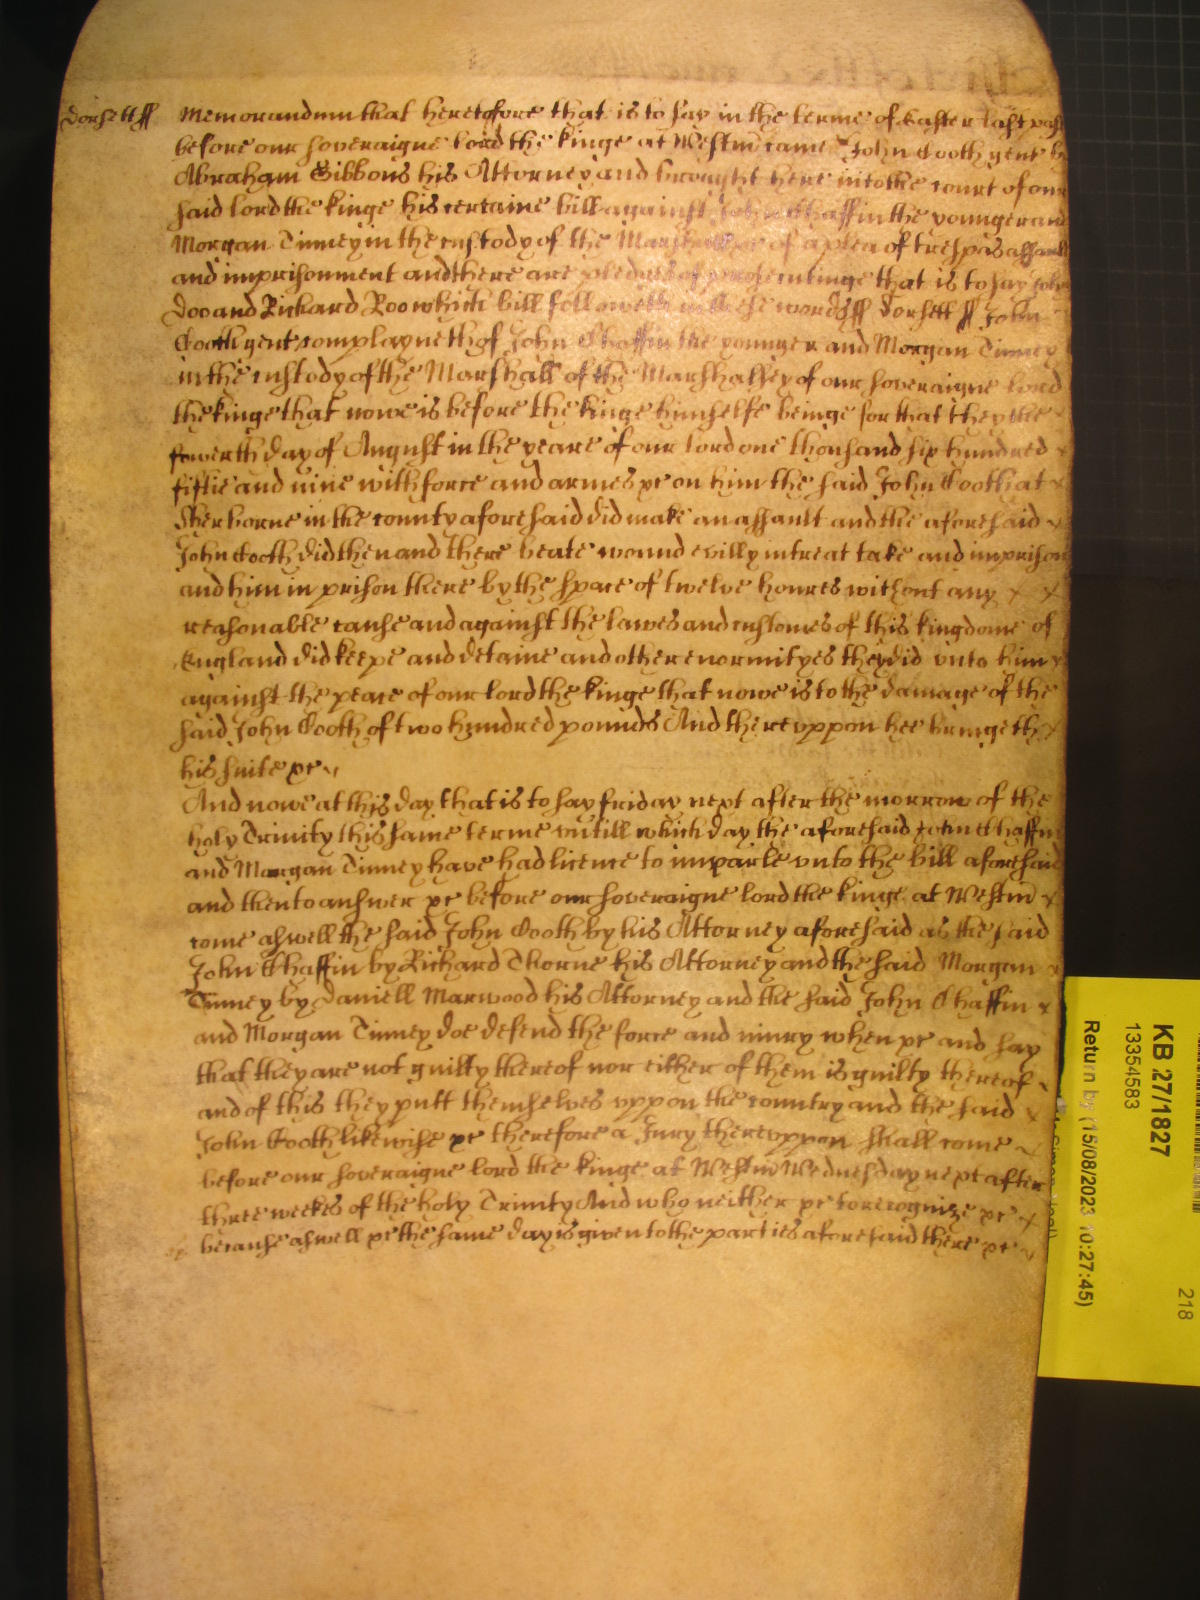 Dorsett ff Memorandum that heretofore that is to say in the terme of Easter last past
before our soveraigne lord the kinge at Westm̄ came John Cooth gent by
Abraham Gibbons his Attorney and brought here into the court of our
said lord the kinge his certaine bill against John Chaffin the younger and
Morgan Tinney in the custody of the Marshall &c of a plea of trespas assault
and imprisonment and there are pledges of prosecutinge that is to say John
Doo and Richard Roo which bill followeth in these words ff Dorsett ff John
Cooth gent complayneth of John Chaffin the younger and Morgan Tinney
in the custody of the Marshall of the Marshalsey of our soveraigne lord
the kinge that nowe is before the kinge himselfe beinge for that they the
fowerth day of August in the yeare of our lord one thousand six hundred
fiftie and nine with force and armes &c on him the said John Cooth at
Sherborne in the county aforesaid did make an assault and the aforesaid
John Cooth did then and there beate wound evilly intreat take and imprison
and him in prison there by the space of twelve houres without any
reasonable cause and against the lawes and customes of this kingdome of
England did keepe and detaine and other enormityes they did unto him
against the peace of our lord the kinge that nowe is to the damage of the
said John Cooth of two hundred pounds And thereuppon hee bringeth
his suite &c
And nowe at this day that is to say friday next after the morrow of the
holy Trinity this same terme untill which day the aforesaid John Chaffin
and Morgan Tinney have had licence to imparle unto the bill aforesaid
and then to answer &c before our soveraigne lord the kinge at Westm̄
come aswell the said John Cooth by his Attorney aforesaid as the said
John Chaffin by Richard Thorne his Attorney and the said Morgan
Tinney by Daniell Marwood his Attorney and the said John Chaffin
and Morgan Tinney doe defend the force and iniury when &c and say
that they are not guilty thereof nor either of them is guilty thereof
and of this they putt themselves uppon the country and the said
John Cooth likewise &c therefore a Jury thereuppon shall come
before our soveraigne lord the kinge at Westm̄ Wednesday next after
three weekes of the holy Trinity And who neither &c to recognize &c
because aswell &c the same day is given to the parties aforesaid there &c
KB 27/1827
13354583
Return by (15/08/2023 10:27:45)
218